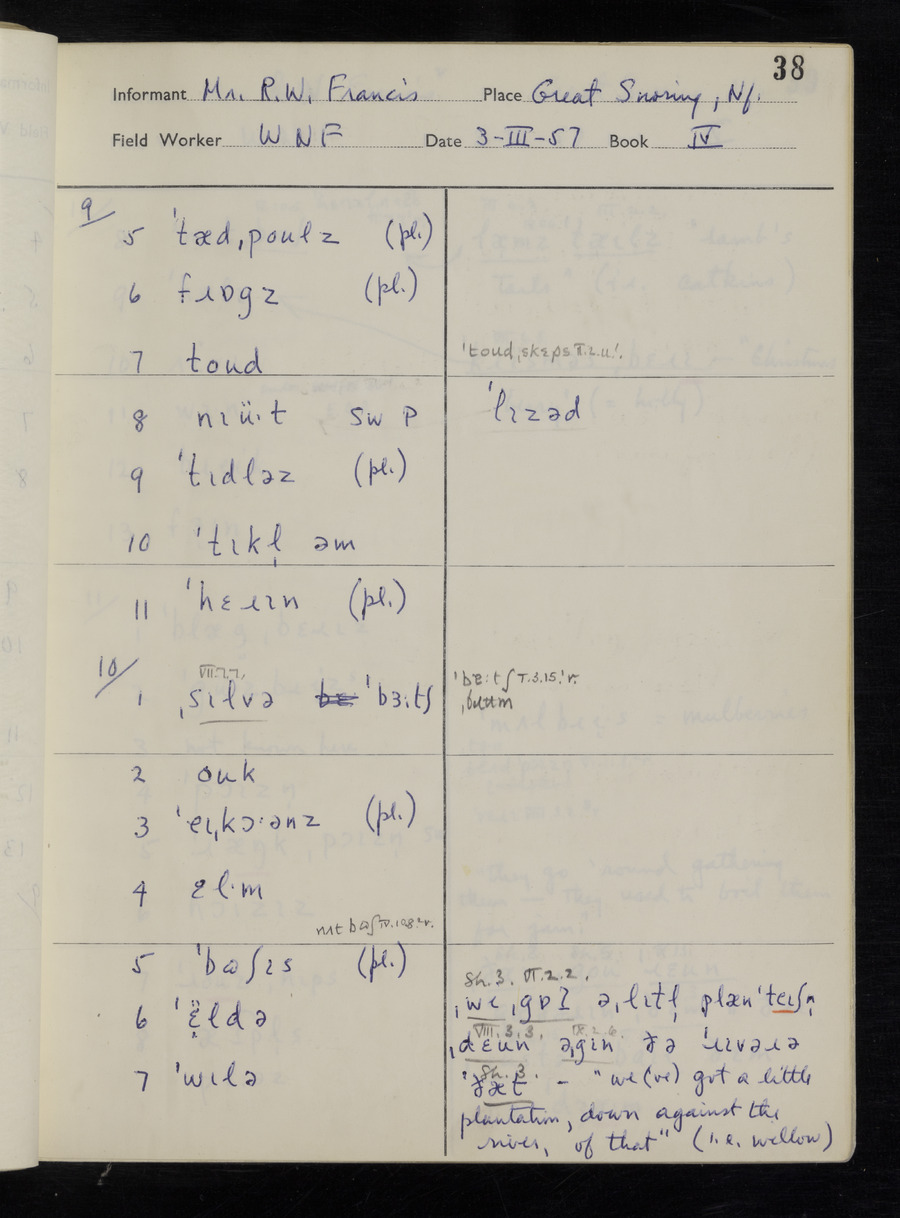 38
Informant Mr. R.W. Francis Place Great Snoring, Nf.
Field Worker W N F Date 3-III-57 Book IV
9/
5 ˈtæd,poulz (pl.)
6 fɹɒgz (pl.)
7 toud ˈtoud,skɛps
8 nɪü·t sw P ˈlɪzəd
9 ˈtɪdləz (pl.)
10 ˈtɪkl̩ əm
11 ˈhɛɹɪn (pl.)
10/
VII.7.7.
1 ˌsɪlvə ˈbɜ:tʃ
2 ouk
3 ˈeɪ,kɔ·ənz (pl.)
4 ɛl·m
5 ˈbʊʃɪs (pl.)
Sh. 3. VI.2.2.
6 ˈɛ̈ldə ˌwɛ ˌgɒʔ ə ˌlɪtl̩ plænˈteɪʃn̩
VIII.3.3. IX.2.6.
ˌdɛun əˌgɪn ðə ˈɹɪvəɹə
Sh. 3.
7 ˈwɪlə ˈðæt – "we (ve) got a little
plantation, down against the
river, of that" (i.e. willow)